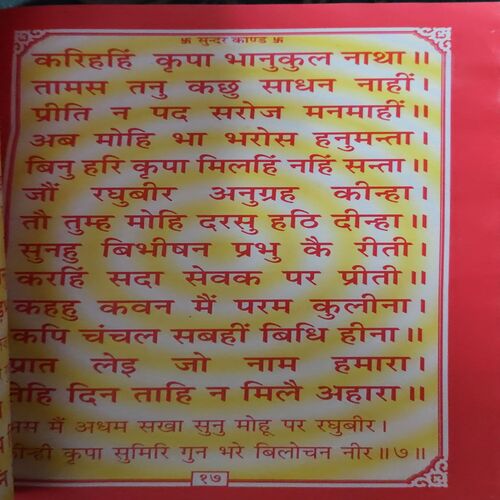 卐 सुन्दर काण्ड 卐
करिहहिं कृपा भानुकुल नाथा॥
तामस तनु कछु साधन नाहीं।
प्रीति न पद सरोज मनमाहीं॥
अब मोहि भा भरोस हनुमन्ता।
बिनु हरि कृपा मिलहिं नहिं सन्ता॥
जौं रघुबीर अनुग्रह कीन्हा।
तौ तुम्ह मोहि दरसु हठि दीन्हा॥
सुनहु बिभीषन प्रभु कै रीती।
करहिं सदा सेवक पर प्रीती॥
कहहु कवन मैं परम कुलीना।
कपि चंचल सबहीं बिधि हीना॥
प्रात लेइ जो नाम हमारा।
तेहि दिन ताहि न मिलै अहारा॥
अस मैं अधम सखा सुनु मोहू पर रघुबीर।
कीन्ही कृपा सुमिरि गुन भरे बिलोचन नीर॥७॥
१७